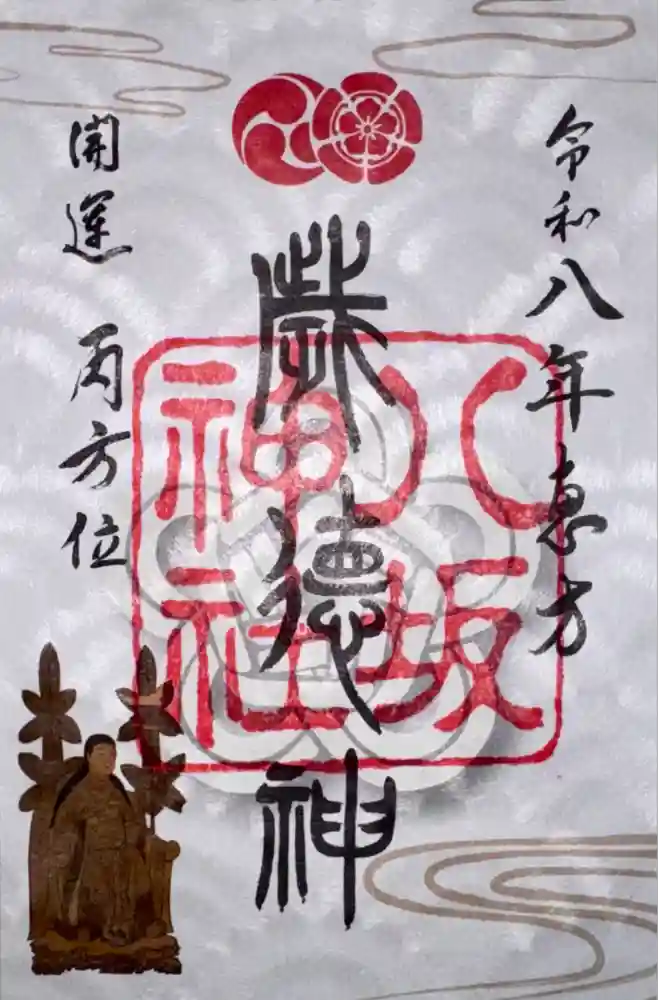 令和八年恵方
歳德神
八坂
神社
開運 丙方位